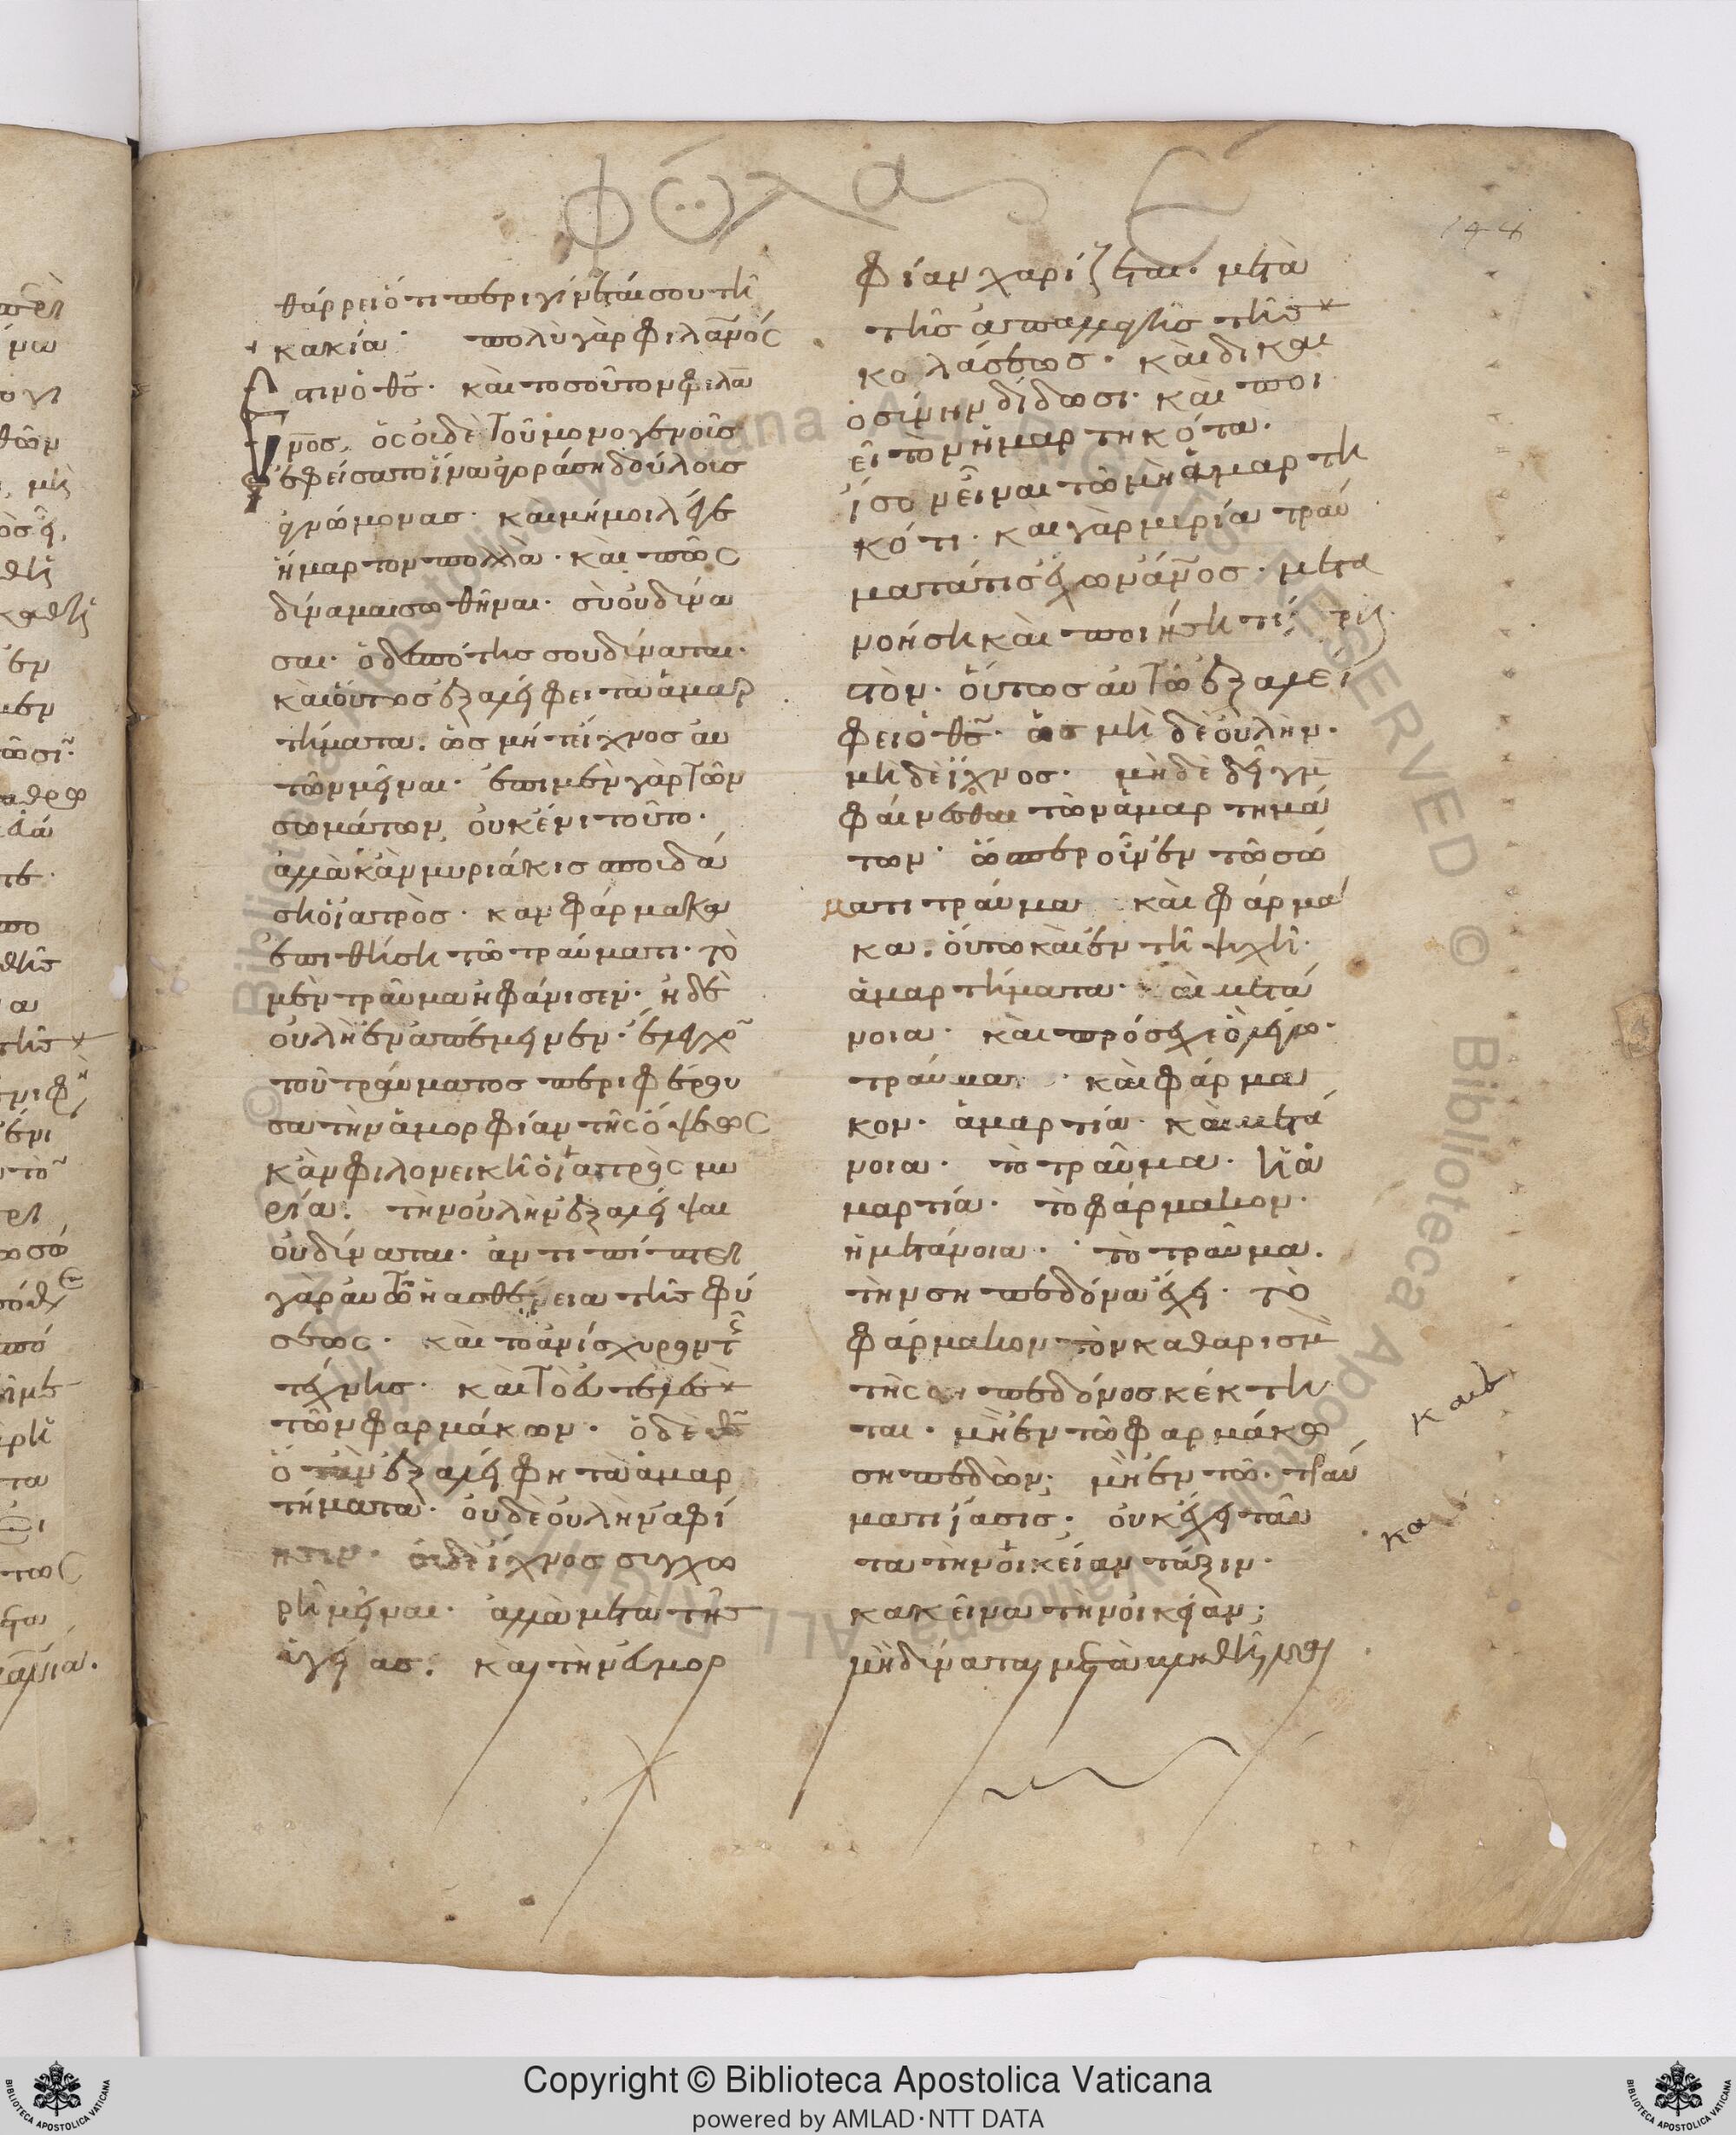 144
θάρρει ὅτι περιγίνεταί σου τῆ
κακία· πολὺ γὰρ φιλᾶνός
ἐστιν ὁ θς̃· καὶ τοσοῦτον φιλᾶ
νος, ὅς οὐδὲ τοῦ μονογενοῦς
ἐφείσατο ἵνα ἀγοράση δούλους
ἀγνώμονας· καὶ μή μοι λέγε
ἥμαρτον πολλὰ· καὶ πῶς
δύναμαι σωθῆναι· σὺ οὐ δύνα
σαι· ὁ δεσπότης σου δύναται·
καὶ οὕτως ἐξαλείφει τὰ ἁμαρ
τήματα. ὡς μήτε ἴχνος αυ
τῶν μεῖναι· ἐπὶ μὲν γὰρ τῶν
σωμάτων οὐκ ἔνι τοῦτο·
ἀλλὰ κἂν μυριάκις σπουδά
ση ὁ ἰατρὸς· καν φάρμακα
ἐπιθήση τῶ τραύματι· τὸ
μὲν τραῦμα ἠφάνισεν· ἡ δὲ
οὐλὴ ἐναπέμεινεν·
τοῦ τραύματος περιφέρου
σα τὴν ἀμορφίαν τῆς ὄψεως
κἂν φιλονεικῆ ὁ ἰατρὸς μυ
ρία. τὴν οὐλὴν ἐξαλεῖψαι
οὐ δύναται· ἀντιπίπτει
γὰρ αυτῶ ἡ ασθένεια τῆς φύ
σεως· καὶ τὸ ἀνίσχυρον τῆς
τέχνης· καὶ τὸ εὐτελὲς
τῶν φαρμάκων· ὁ δὲ θς̃
ὅταν ἐξαλείφη τὰ ἁμαρ
τήματα· οὐδὲ οὐλὴν ἀφί
ησιν· οὐδὲ ἴχνος συγχω
ρεῖ μεῖναι· ἀλλὰ μετὰ τῆς
ὑγείας. καὶ τὴν εὐμορ
φίαν χαρίζεται· μετὰ
τῆς ἀπαλλαγῆς τῆς
κολάσεως· καὶ δικαι
οσύνην δίδωσι· καὶ ποι
εῖ τὸν ἡμαρτηκότα.
ἴσον εἶναι τῶ μὴ ἁμαρτη
κότι· καὶ γὰρ μυρία τραύ
ματα τὶς ἔχων ἄνος· μετα
νοήση καὶ ποιήση τί χρη
στὸν· οὕτως αὐτῶ ἐξαλεί
φει ὁ θς̃· ὡς μὴ δὲ οὐλὴν·
μὴ δὲ ἴχνος· μὴ δὲ δεῖγμα
φαίνεσθαι τῶν ἁμαρτημά
των· ὥσπερ οὖν ἐν τῶ σώ
ματι τραύμα καὶ φάρμα
κα. οὕτω καὶ ἐν τῆ ψυχῆ·
ἁμαρτήματα· καὶ μετά
νοια· καὶ πρόσεχε
τραύμα· καὶ φάρμα
κον· ἁμαρτία· καὶ μετά
νοια· τὸ τραῦμα· ἡ ἁ
μαρτία· τὸ φάρμακον·
ἡ μετάνοια· τὸ τραῦμα.
τὴν σηπεδόνα ἔχει· τὸ
φάρμακον τὸν καθαρισμὸ
τῆς σηπεδόνος κέκτη
ται· μὴ ἐν τῶ φαρμάκω
σηπεδὼν; μὴ ἐν τῶ τραύ
ματι ἴασις; οὐκ ἔχει ταῦ
τα τὴν οἰκείαν τάξιν·
κακεῖνα τὴν οἰκείαν;
μὴ δύναται μετὰ
και
και